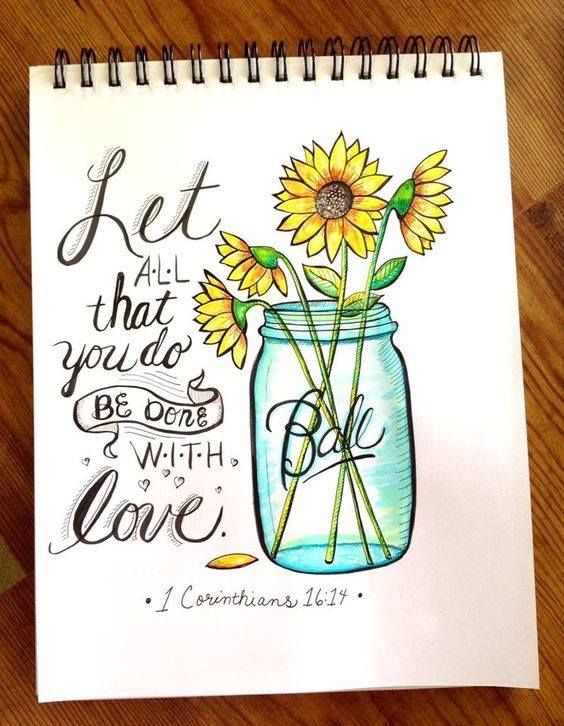 Let
A·L·L
that
you do
BE DONE
W·I·T·H
love.
Ball
• 1 Corinthians 16:14 •